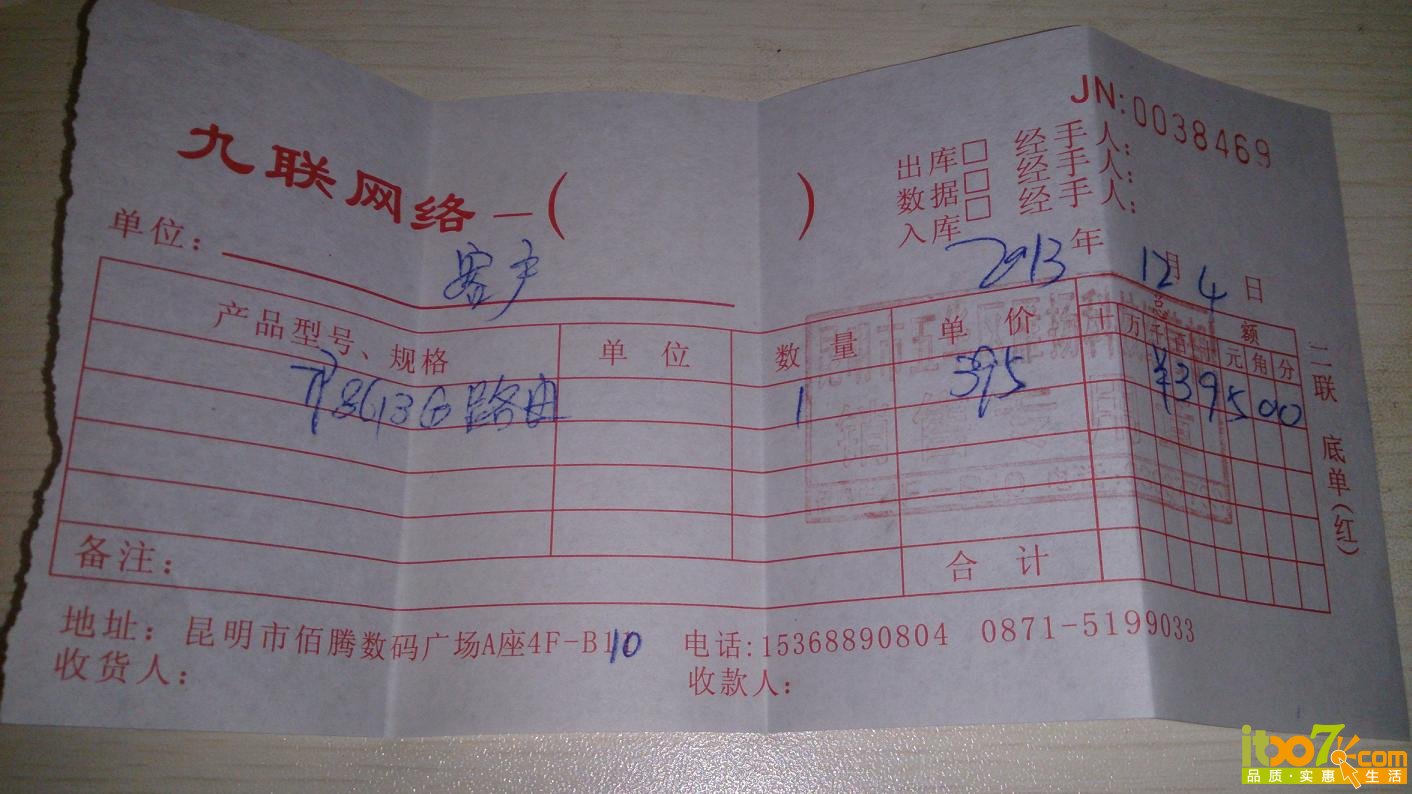 JN:0038469
九联网络—(          )
出库□ 经手人:
数据□ 经手人:
入库□ 经手人:
单位: 客户
2013年 12月 4日
产品型号、规格 单位 数量 单价 总额
十万千百 元角分
路由 1 395 ¥39500
备注: 合计
二联 底单(红)
地址: 昆明市佰腾数码广场A座4F-B110 电话:15368890804 0871-5199033
收货人: 收款人:
销售专用章
itbo7.com
品质·实惠 生活